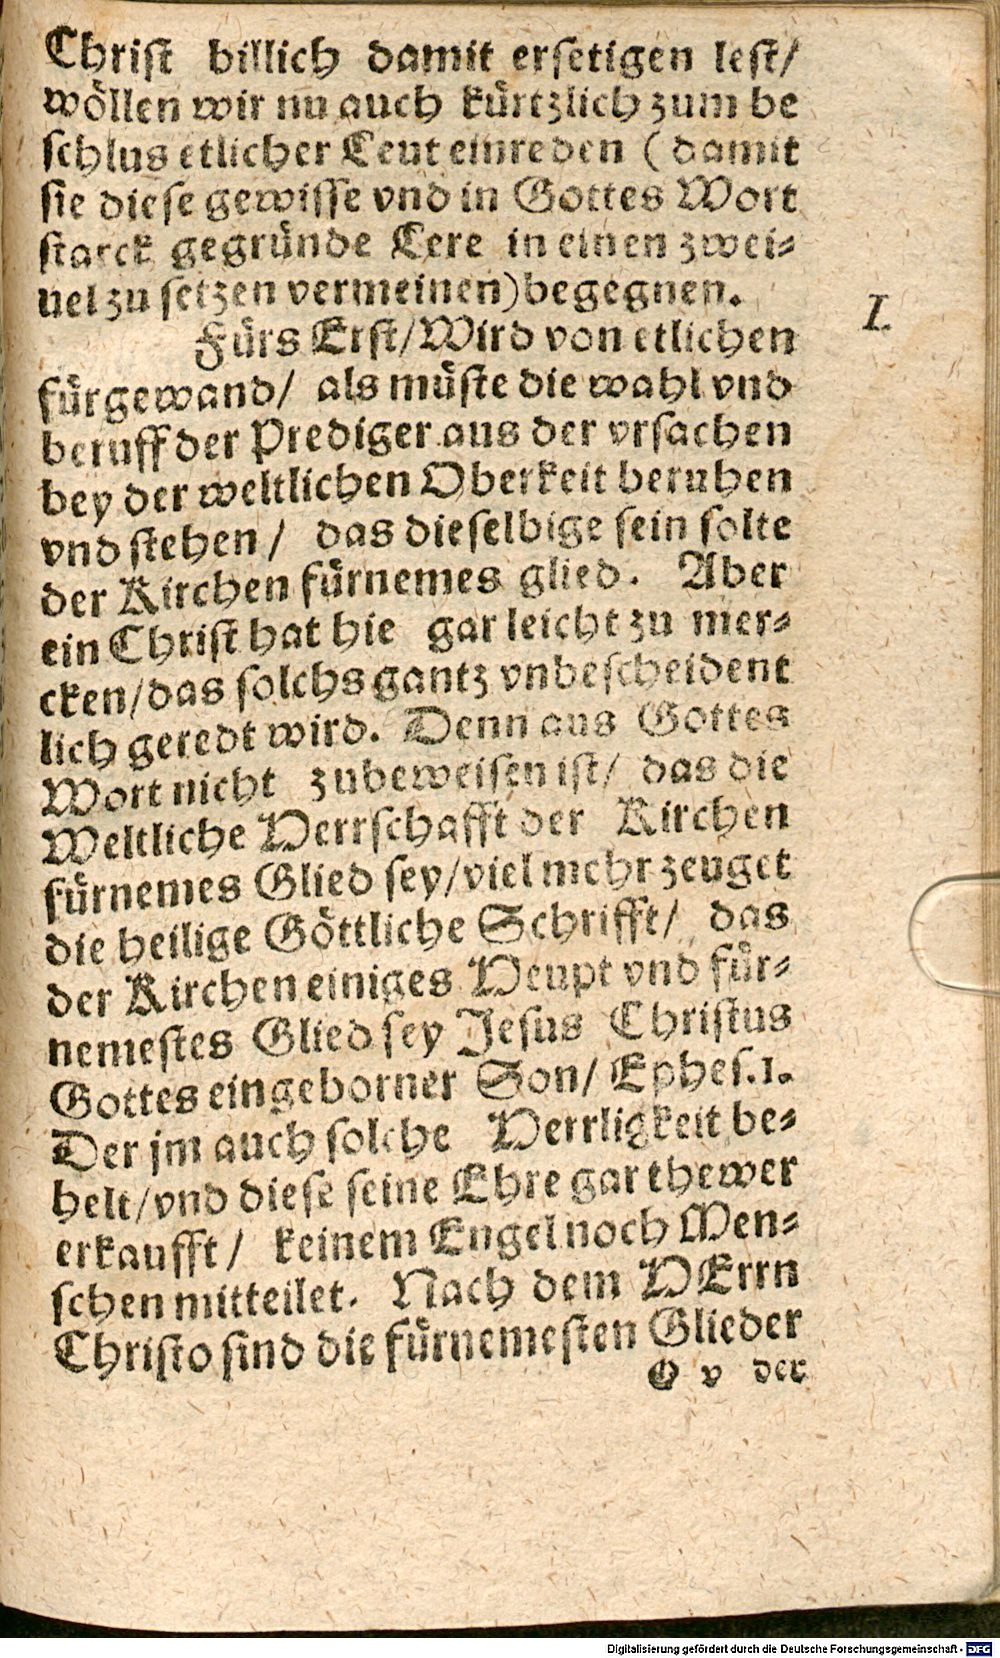 Christ billich damit ersetigen lest/
wöllen wir nu auch kürtzlich zum be
schlus etlicher Leut einreden (damit
sie diese gewisse vnd in Gottes Wort
starck gegründe Lere in einen zwei-
uel zu setzen vermeinen) begegnen.
I.
Fürs Erst/ Wird von etlichen
fürgewand/ als müste die wahl vnd
beruff der Prediger aus der vrsachen
bey der weltlichen Oberkeit beruhen
vnd stehen/ das dieselbige sein solte
der Kirchen fürnemes glied. Aber
ein Christ hat hie gar leicht zu mer-
cken/ das solchs gantz vnbescheident
lich geredt wird. Denn aus Gottes
Wort nicht zubeweisen ist/ das die
Weltliche Herrschafft der Kirchen
fürnemes Glied sey/ viel mehr zeuget
die heilige Göttliche Schrifft/ das
der Kirchen einiges Heupt vnd für-
nemestes Glied sey Jesus Christus
Gottes eingeborner Son/ Ephes.1.
Der jm auch solche Herrligkeit be-
helt/ vnd diese seine Ehre gar thewer
erkaufft/ keinem Engel noch Men-
schen mitteilet. Nach dem HErrn
Christo sind die fürnemesten Glieder
O v der
Digitalisierung gefördert durch die Deutsche Forschungsgemeinschaft - DFG